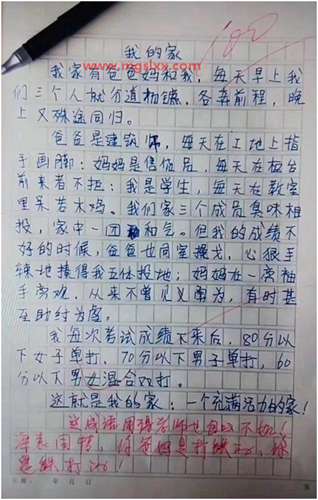 www.mgslxx.com
100
我的家
我家有爸爸妈和我，每天早上我
们三个人就分道扬镳，各奔前程，晚
上又殊途同归。
爸爸是建筑师，每天在工地上指
手画脚；妈妈是售货员，每天在柜台
前来者不拒；我是学生，每天在教室
里呆若木鸡。我们家三个成员臭味相
投，家中一团和气。但我的成绩不
好的时候，爸爸也同室操戈，心狠手
辣地揍得我五体投地；妈妈在一旁袖
手旁观，从来不曾见义勇为，有时甚
至助纣为虐。
我每次考试成绩下来后，80分以
下女子单打，70分以下男子单打，60
分以下男女混合双打。
这就是我的家：一个充满活力的家！
这成语用得